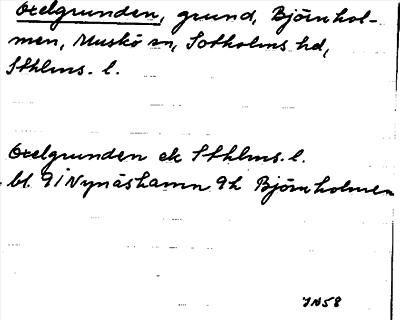 Oxelgrunden, grund, Björnhol-
men, Muskö sn, Sotholms hd,
Sthlms. l.
Oxelgrunden ek Sthlms. l.
bl. 9I Nynäshamn 9h Björnholmen
JN58